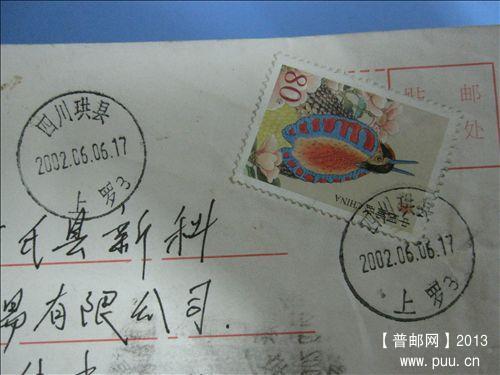 四川珙县
2002.06.06.17
上罗3
80
CHINA
贴邮
处
四川珙县
2002.06.06.17
上罗3
氏县新科
易有限公司.
【普邮网】2013
www.puu.cn